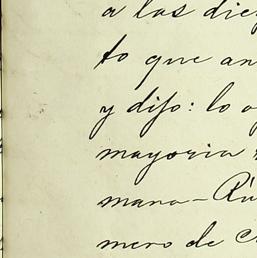 a las die
to que an
y dijo: lo o
mayoria
mana-Rú
mero de